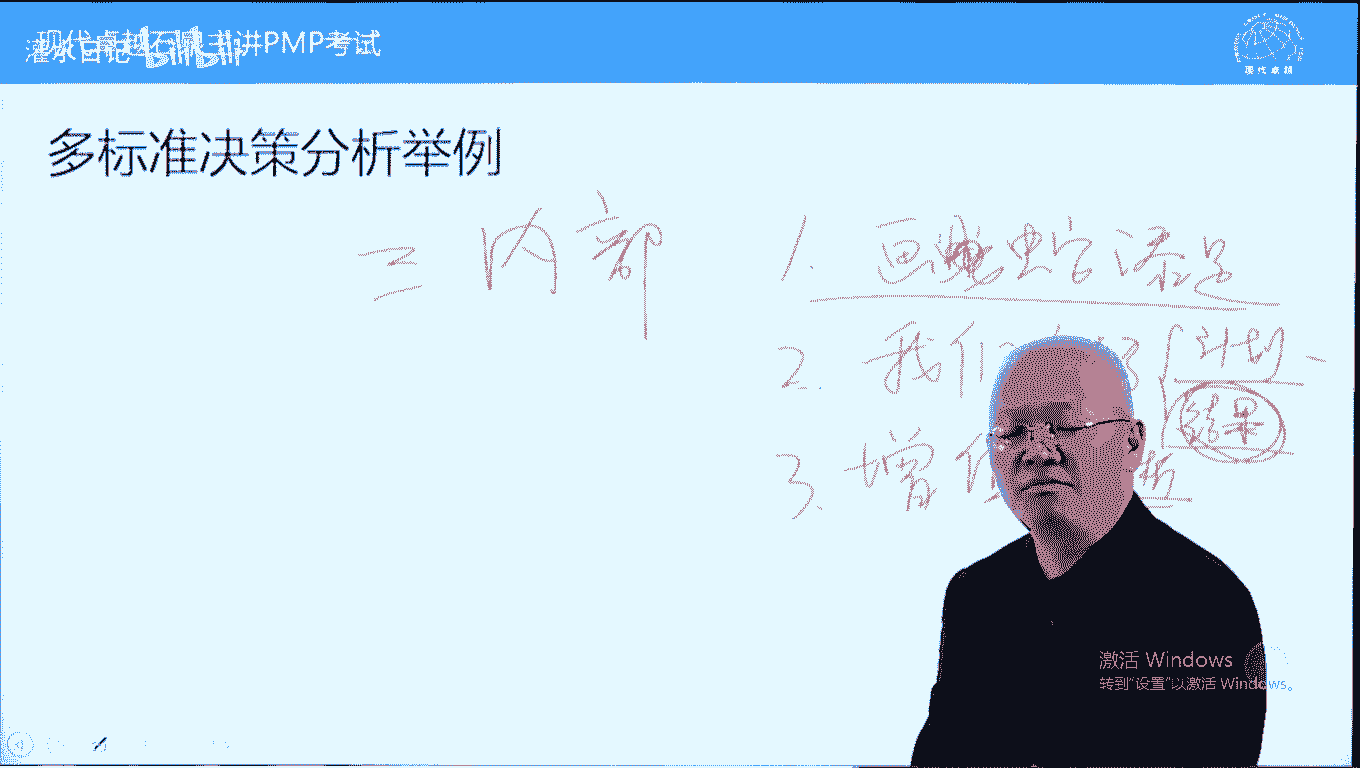 现代卓越石泉主讲PMP考试
灌水日记 bilibili
现代卓越
多标准决策分析举例
三 内部
1. 画蛇添足
2. 我们 计划
结果
3. 增值 析
激活 Windows
转到"设置"以激活 Windows。